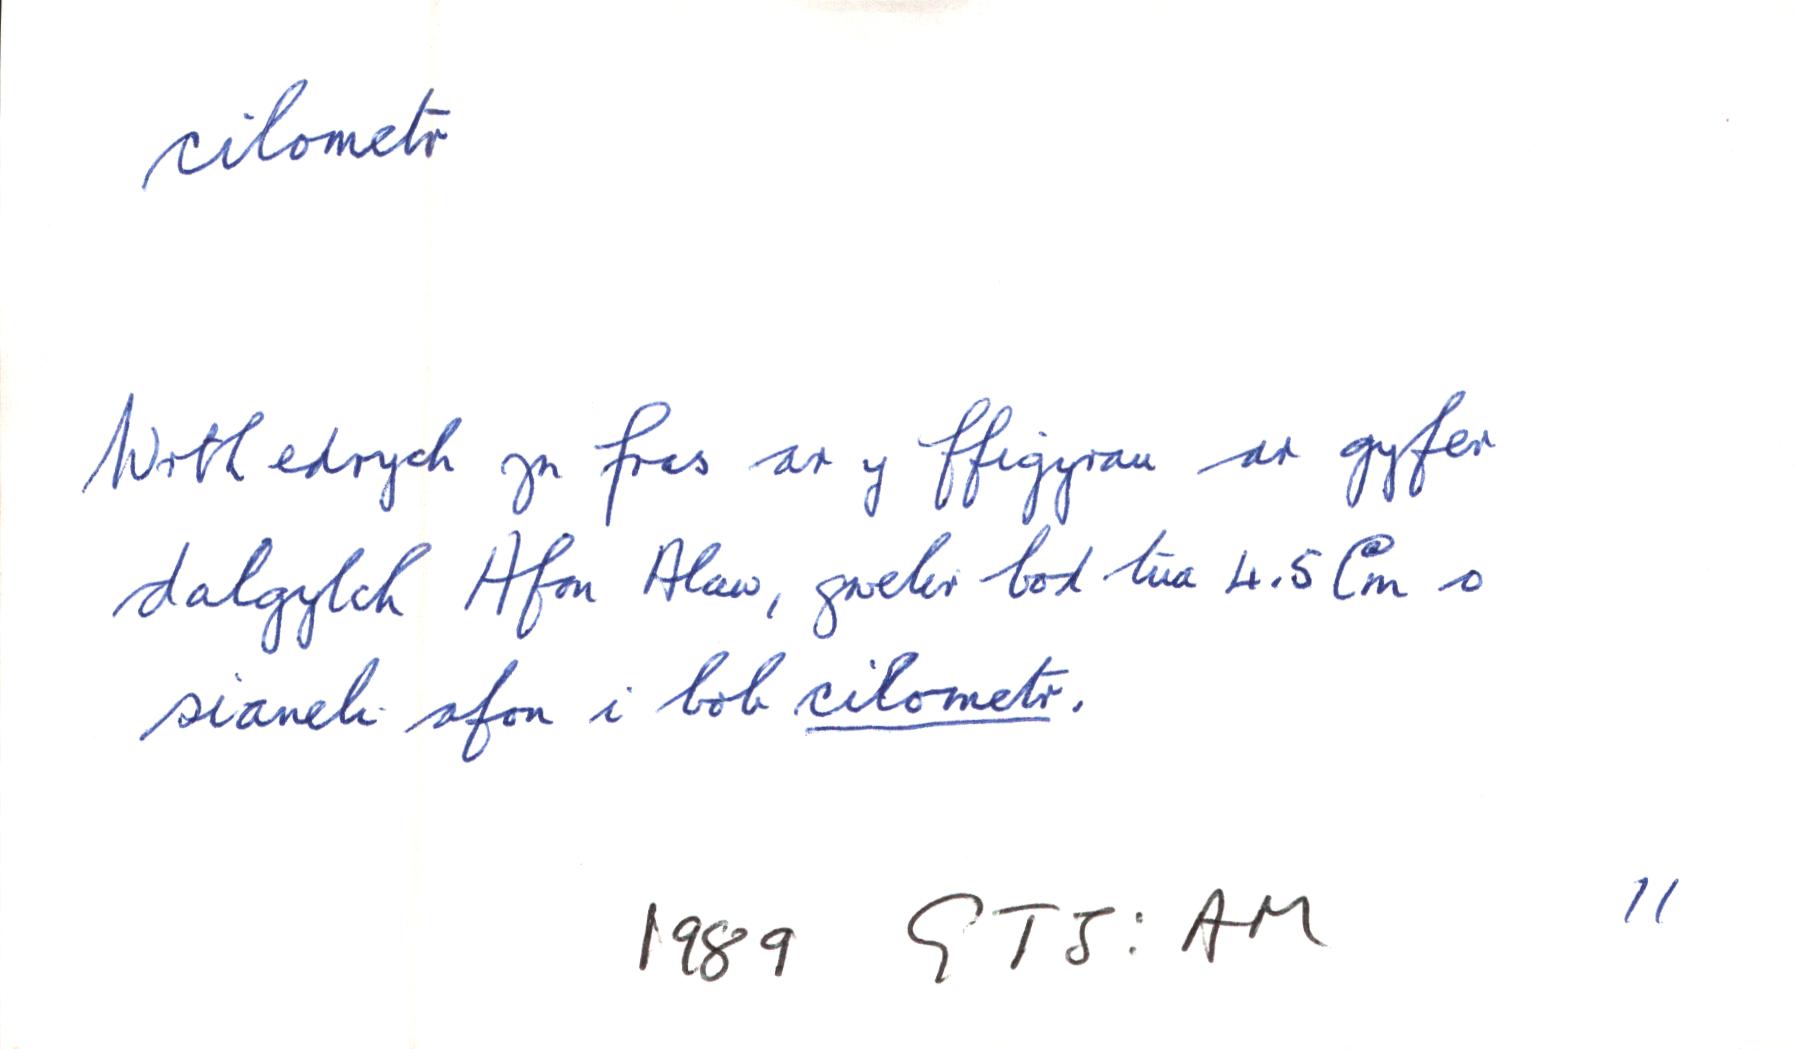 cilometr
Wrth edrych yn fras ar y ffigyrau ar gyfer
dalgylch Afon Alaw, gwelir bod tua 4.5 Cm o
sianeli afon i bob cilometr.
1989 GTJ: AM 11